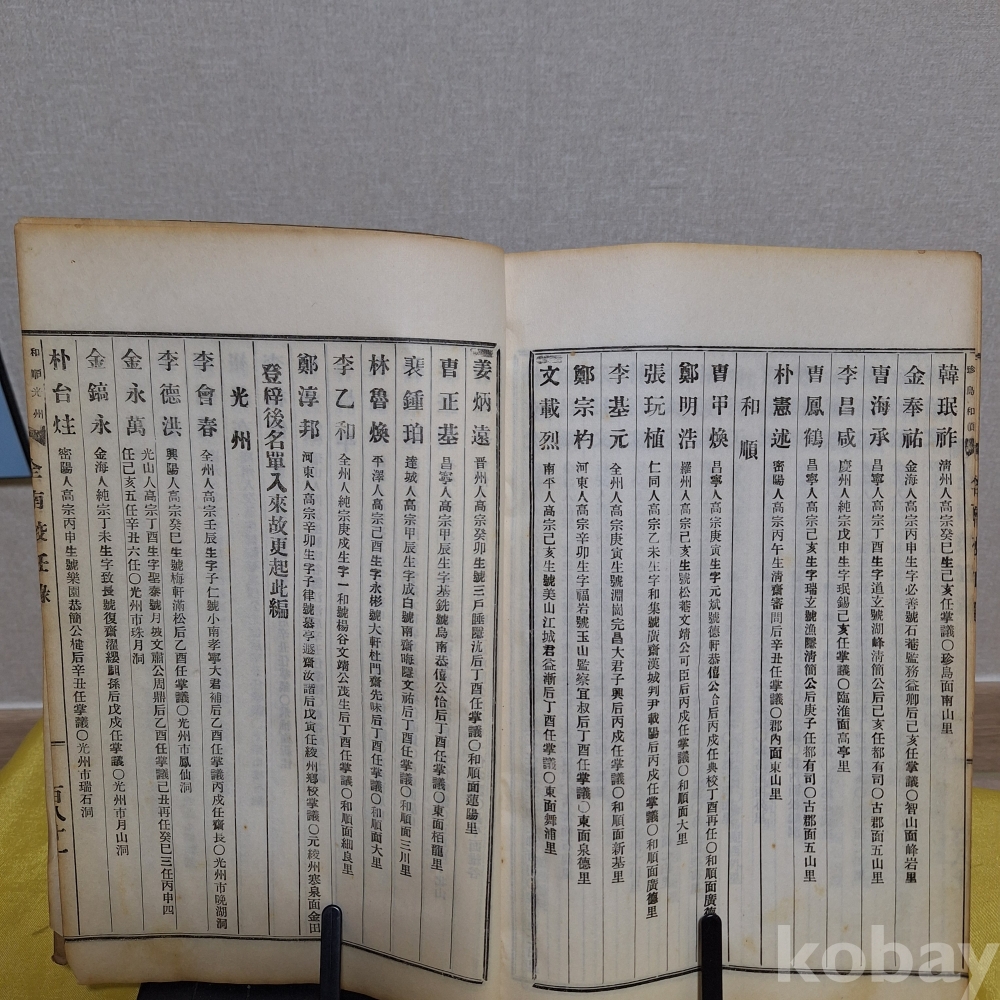 珍島 和順
韓珉祚 淸州人高宗癸巳生己亥任掌議〇珍島面南山里
金奉祐 金海人高宗丙申生字必善號石菴監務益卿后己亥任掌議〇智山面峰岩里
曺海承 昌寧人高宗丁酉生字道玄號湖峰淸簡公后己亥任都有司〇古郡面五山里
李昌咸 慶州人純宗戊申生字珉錫己亥任掌議〇臨淮面高亭里
曺鳳鶴 昌寧人高宗己亥生字瑞玄號漁隱淸簡公后庚子任都有司〇古郡面五山里
朴憲述 密陽人高宗丙午生淸齋審問后辛丑任掌議〇郡內面東山里
和順
曺甲煥 昌寧人高宗庚寅生字元斌號德軒恭僖公恰后丙戍任典校丁酉再任〇和順面廣德
鄭明浩 羅州人高宗己亥生號松菴文靖公可臣后丙戍任掌議〇和順面大里
張玩植 仁同人高宗乙未生字和集號廣齋漢城判尹載陽后丙戍任掌議〇和順面廣德里
李基元 全州人高宗庚寅生號淵崗完昌大君子興后丙戍任掌議〇和順面新基里
鄭宗杓 河東人高宗辛卯生字福岩號玉山監察宜叔后丁酉任掌議〇東面泉德里
文載烈 南平人高宗己亥生號美山江城君益漸后丁酉任掌議〇東面舞浦里
姜炳遠 晋州人高宗癸卯生號三戶睡隱沆后丁酉任掌議〇和順面蓮陽里
曺正基 昌寧人高宗甲辰生字基銑號烏南恭僖公恰后丁酉任掌議〇東面栢龍里
裵鍾珀 達城人高宗甲辰生字成白號南齋晦隱文祐后丁酉任掌議〇和順面三川里
林魯煥 平澤人高宗己酉生字永彬號大軒杜門齋先味后丁酉任掌議〇和順面大里
李乙和 全州人純宗庚戍生字一和號楊谷文靖公茂生后丁酉任掌議〇和順面細良里
鄭淳邦 河東人高宗辛卯生字子律號慕亭遯齋汝諧后戊寅任綾州鄕校掌議〇元綾州寒泉面金田
登梓後名單入來故更起此編
光州
李會春 全州人高宗壬辰生字子仁號小南孝寧大君補后乙酉任掌議丙戍任齋長〇光州市晩湖洞
李德洪 興陽人高宗癸巳生號梅軒滿松后乙酉任掌議〇光州市鳳仙洞
金永萬 光山人高宗丁酉生字聖泰號月坡文肅公周鼎后乙酉任掌議己丑再任癸巳三任丙申四
任己亥五任辛丑六任〇光州市珠月洞
金鎬永 金海人純宗丁未生字致長號復齋濯纓馹孫后戊戍任掌議〇光州市月山洞
朴台炷 密陽人高宗丙申生號樂園恭簡公楗后辛丑任掌議〇光州市瑞石洞
和順 光州
全南校任錄
kobay